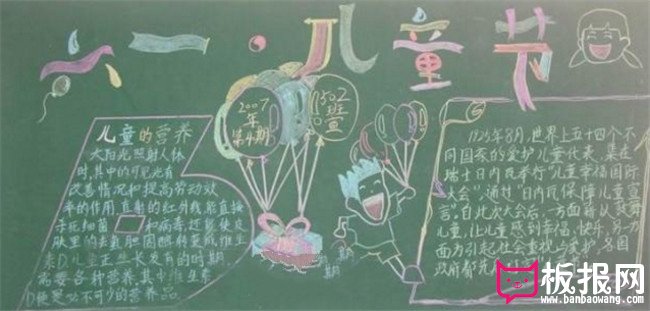 六一·儿童节
2007
年
第4期
1502
班
宣
儿童的营养
太阳光照射人体
时,其中的可见光有
改善情况和提高劳动效
率的作用.直射的红外线能直接
杀死细菌和病毒,还能使皮
肤里的去氧胆固
需要各种营养,其中维生
D便是必不可少的营养品
1925年8月,世界上五十四个不
同国家的爱护儿童代表,集在
瑞士日内瓦举行"儿童幸福国际
大会",通过"日内瓦保障儿童宣
言".自此次大会后,一方面藉以鼓舞
儿童,让儿童感到幸福、快乐,另一方
面为引起社会重视与爱护,各国
政府都先
板报网
www.banbaowang.com